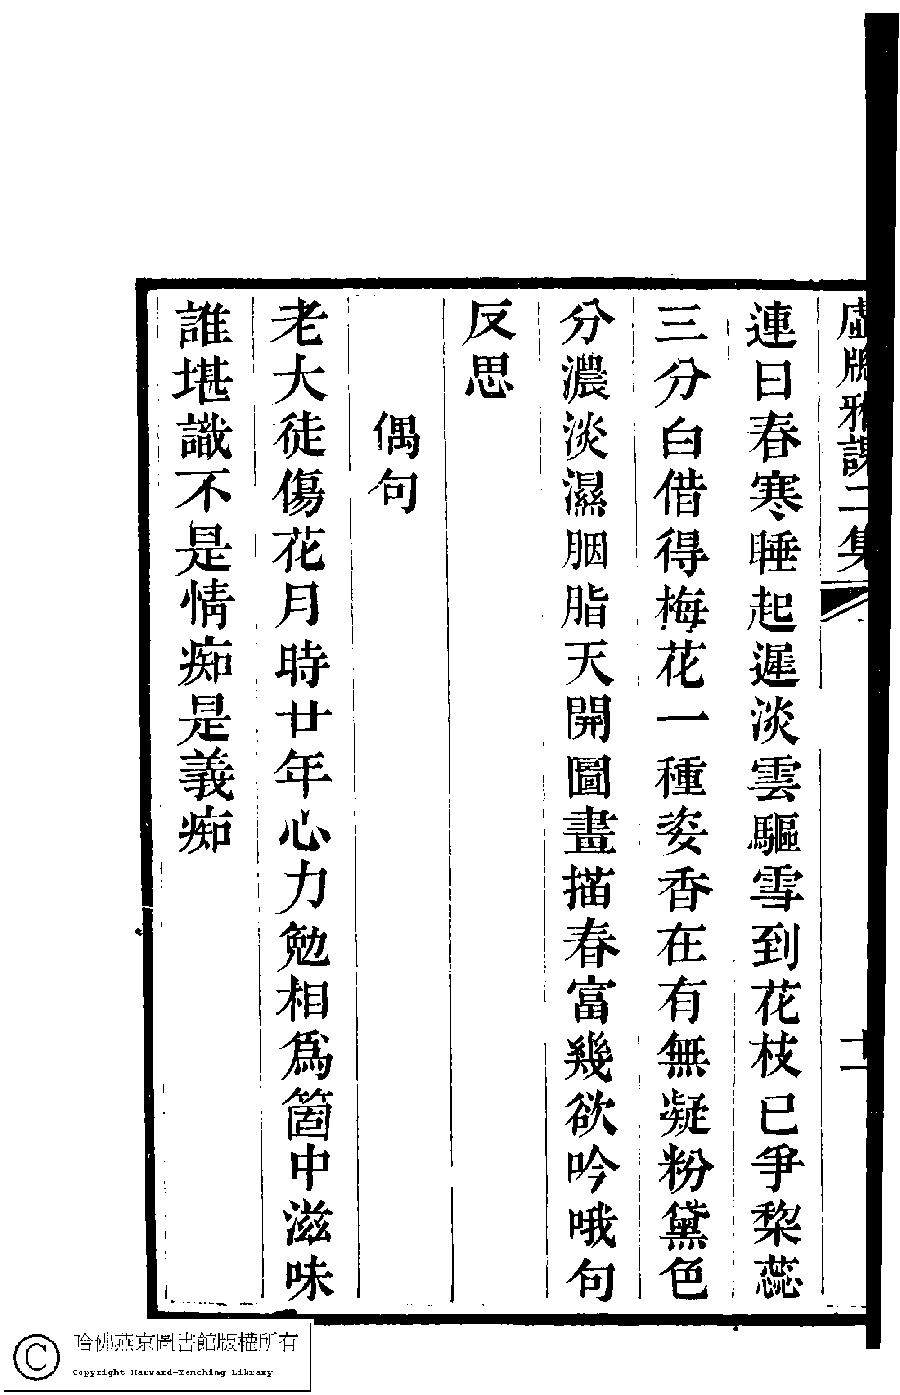 虛牕雅課二集
十一
連日春寒睡起遲淡雲驅雪到花枝已爭棃蕊
三分白借得梅花一種姿香在有無凝粉黛色
分濃淡濕胭脂天開圖畫描春富幾欲吟哦句
反思
偶句
老大徒傷花月時廿年心力勉相爲箇中滋味
誰堪識不是情痴是義痴
哈佛燕京圖書館版權所有
Copyright Harvard-Yenching Library